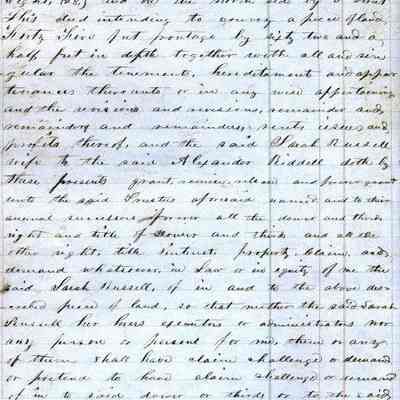 and on the north side by a
This deed intending to convey a piece of land
Forty Five feet frontage by sixty two and a
half feet in depth together with all and sin
gular the tenements, heredetament and appur
tenances thereunto or in any wise appertaining
and the revisions and revisions, remainder and
remainders and remainders, rents issues and
profits thereof, and the said Sarah Russell
wife to the said Alexander Riddell doth by
these presents grant, remise, release and forever
unto the said Trustees aforesaid named and to their
annual successors forever all the dower and thirds
right and title of Dower and thirds and all the
other right, title interest, property, claim, and
demand whatsoever, in Law or in equity of me the
said Sarah Russell, of in and to the above des
cribed piece of land, so that neither the said Sarah
Russell her heirs executors or administrators nor
any person or persons for me, them or any
of them shall have claim challenge or demand
or pretend to have claim challenge or demand
of in to said dower or thirds or to the said